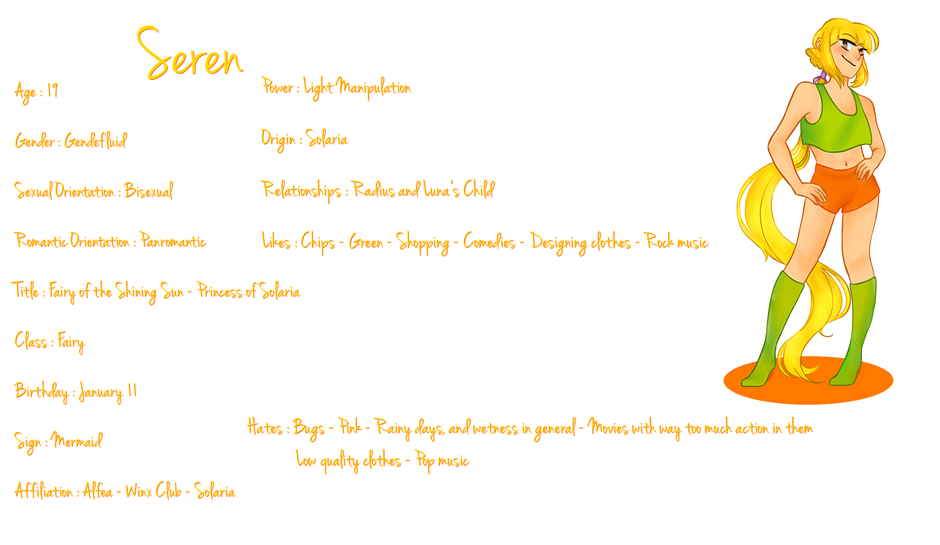 Seren
Age : 19
Gender : Gendefluid
Sexual Orientation : Bisexual
Romantic Orientation : Panromantic
Title : Fairy of the Shining Sun - Princess of Solaria
Class : Fairy
Birthday : January 11
Sign : Mermaid
Affiliation : Alfea - Winx Club - Solaria
Power : Light Manipulation
Origin : Solaria
Relationships : Radius and Luna's Child
Likes : Chips - Green - Shopping - Comedies - Designing clothes - Rock music
Hates : Bugs - Pink - Rainy days, and wetness in general - Movies with way too much action in them
Low quality clothes - Pop music